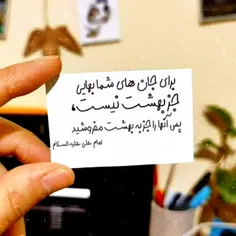 برای جان های شما بهایی
جز بهشت نیست،
پس آنها را جز به بهشت مفروشید
امام علی علیه السلام